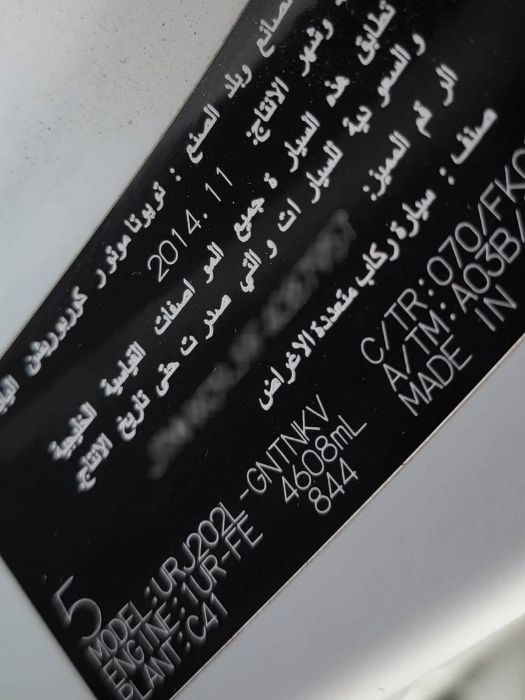 صانع وبلد الصنع : تويوتا موتور كوربوريشن
وشهر الانتاج: 2014.11
تطابق هذه السيارة جميع المواصفات القياسية الخليجية
والسعودية للسيارات والتي صدرت حتى تاريخ الانتاج.
الرقم المميز:
صنف : سيارة ركاب متعددة الاغراض
5
MODEL:URJ202L-GNTNKV
ENGINE:1UR-FE 4608mL
PLANT:C41 844
C/TR:070/FK
A/TM:A03B/
MADE IN